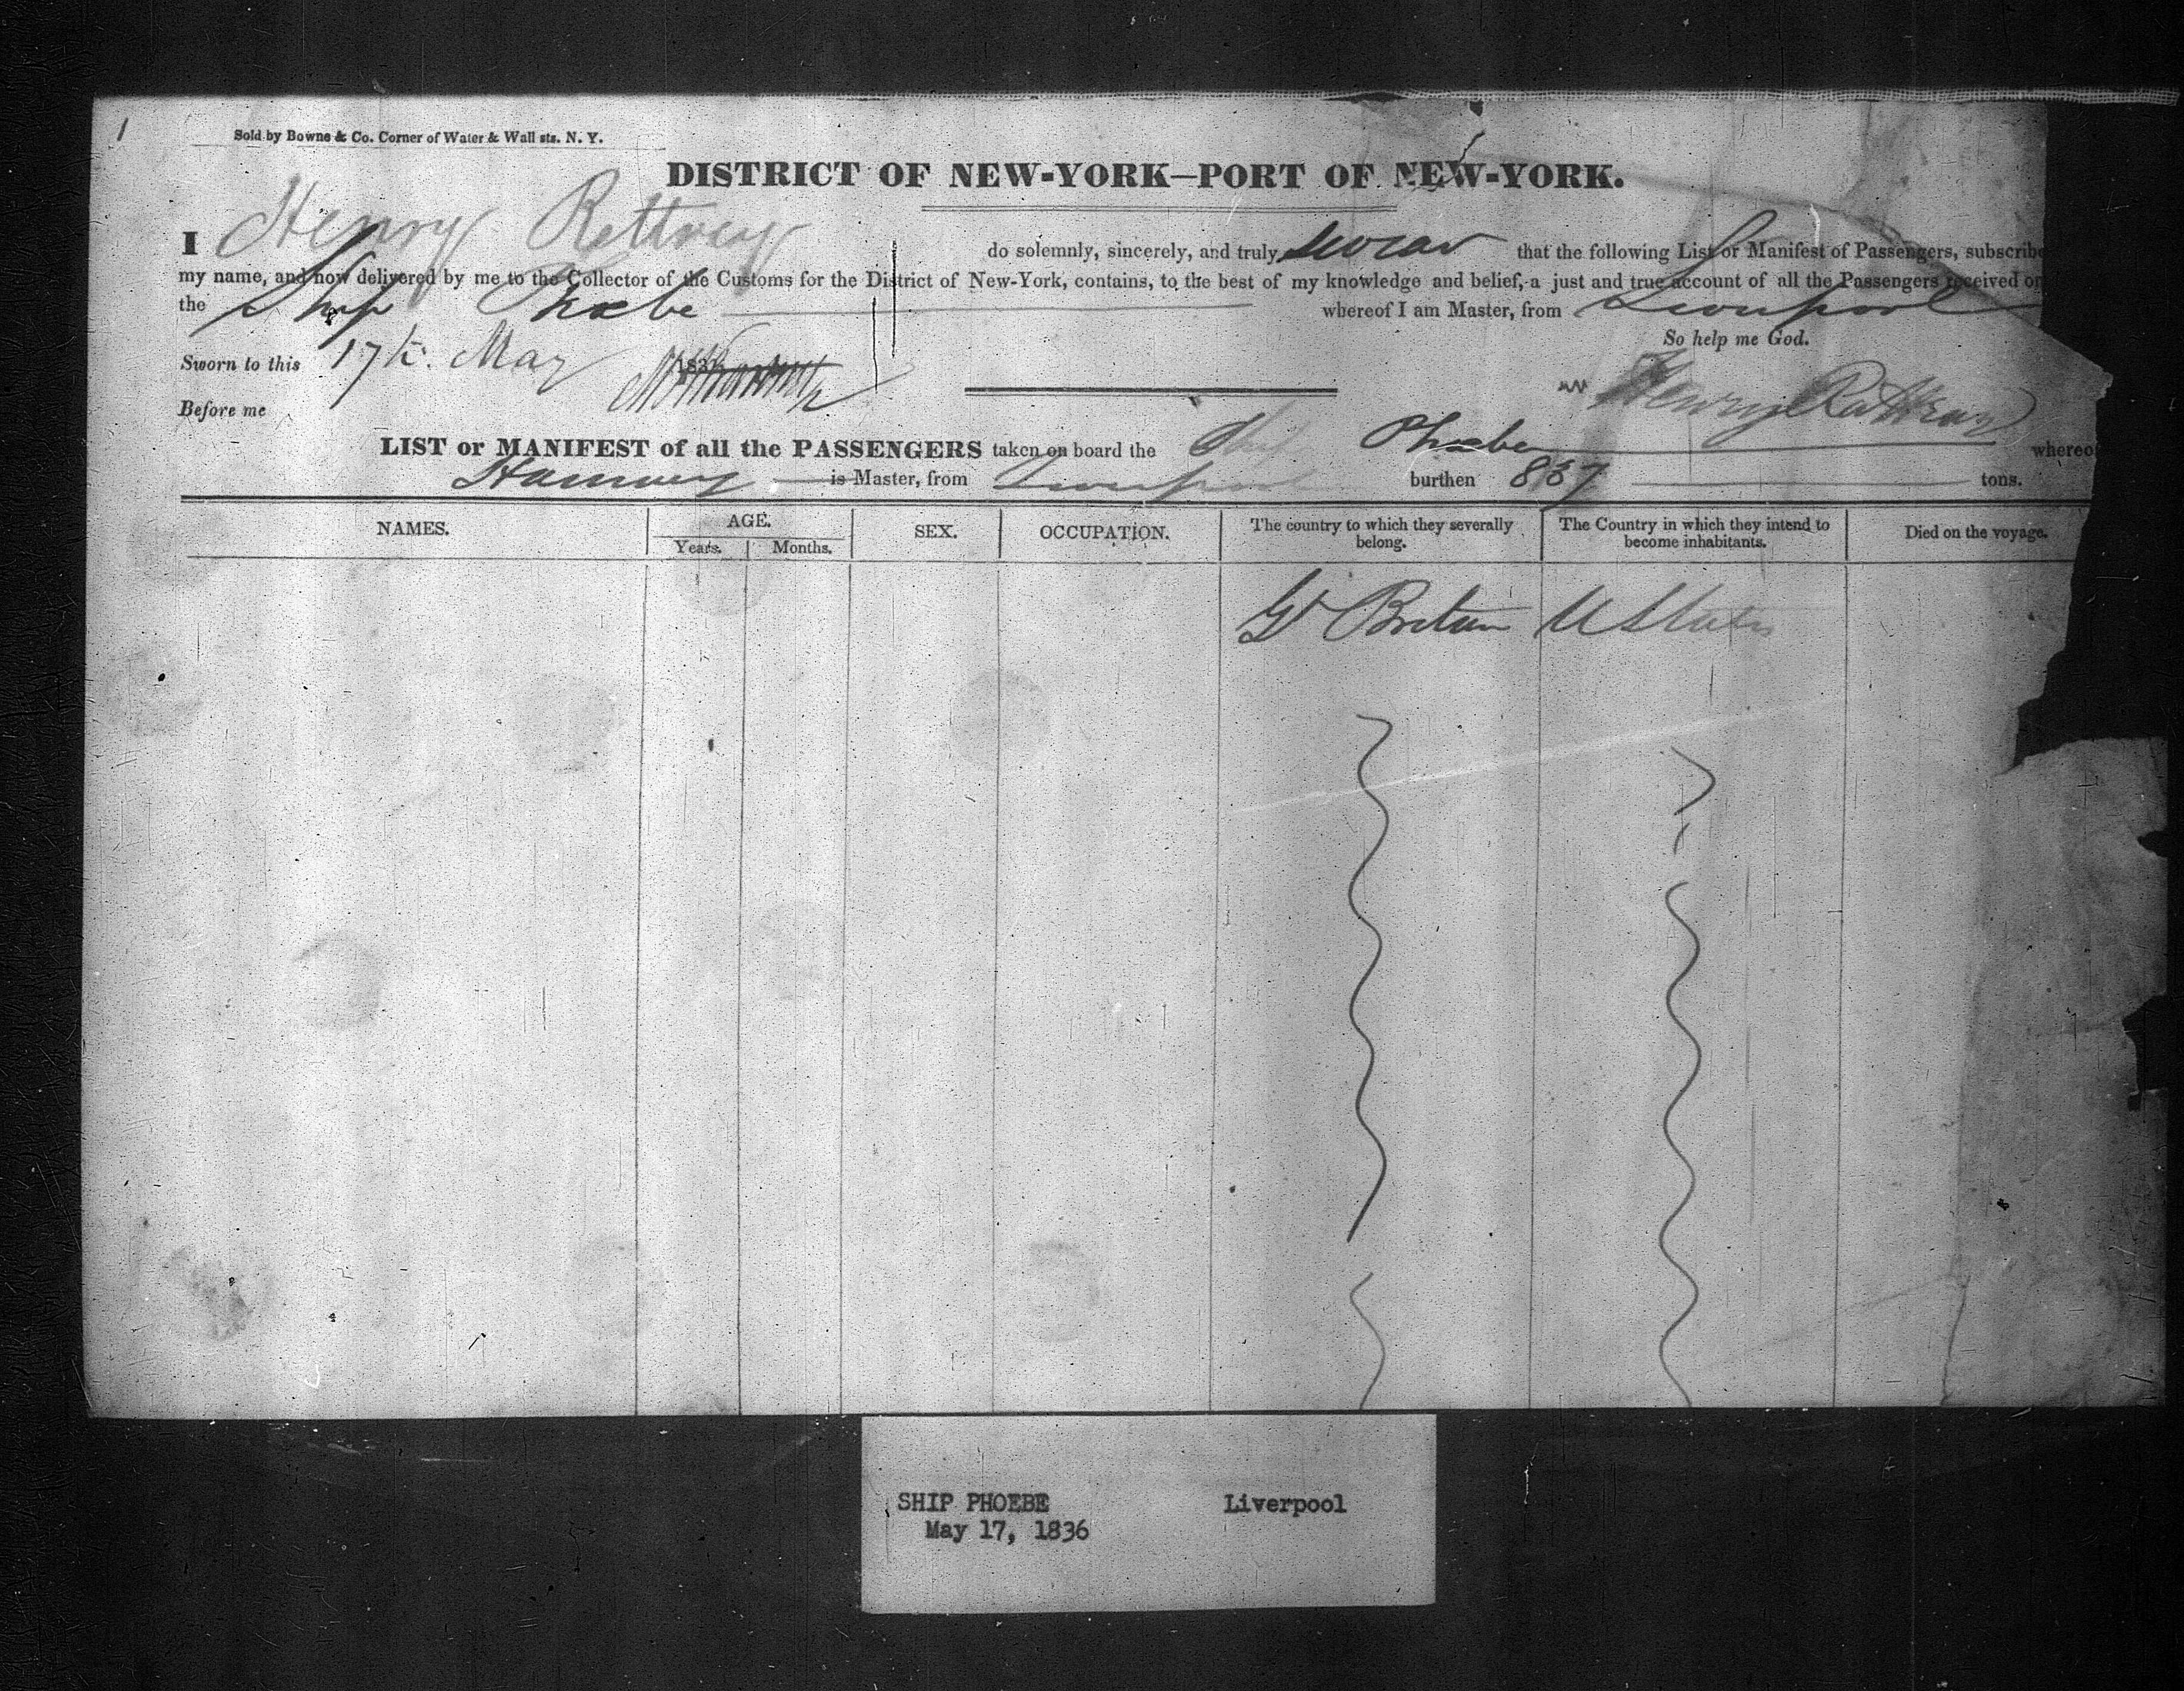 1
Sold by Bowne & Co. Corner of Water & Wall sts. N. Y.
DISTRICT OF NEW-YORK—PORT OF NEW-YORK.
I Henry Rettray do solemnly, sincerely, and truly swear that the following List or Manifest of Passengers, subscribe
my name, and now delivered by me to the Collector of the Customs for the District of New-York, contains, to the best of my knowledge and belief, a just and true account of all the Passengers received on
the Ship Phœbe whereof I am Master, from Liverpool
So help me God.
Sworn to this 17th. May 183
Henry Rattray
Before me
LIST or MANIFEST of all the PASSENGERS taken on board the Ship Phœbe whereof
is Master, from Liverpool burthen 837 tons.
NAMES. AGE. SEX. OCCUPATION. The country to which they severally belong. The Country in which they intend to become inhabitants. Died on the voyage.
Years. Months.
Gt Britain U States
SHIP PHOEBE Liverpool
May 17, 1836